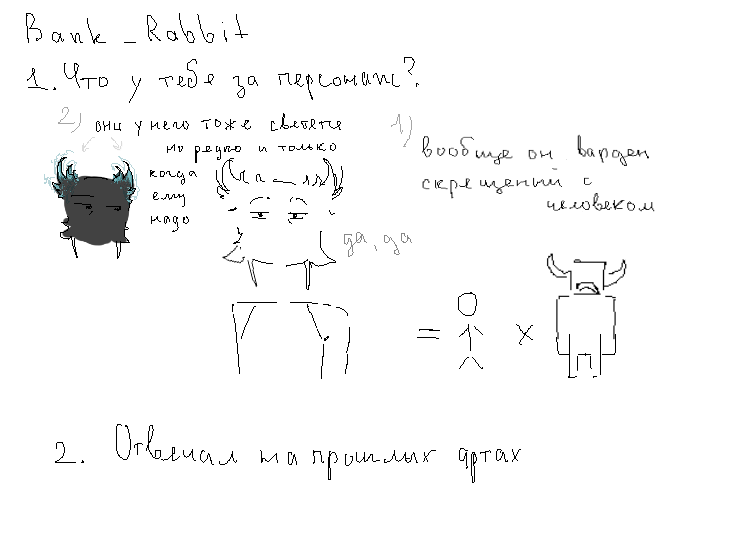 Bank_Rabbit
1. Что у тебя за персонаж?
2) они у него тоже светятся
но редко и только
когда
ему
надо
1) вообще он варден
скрещеный с
человеком
да, да
= x
2. Отвечал на прошлых артах